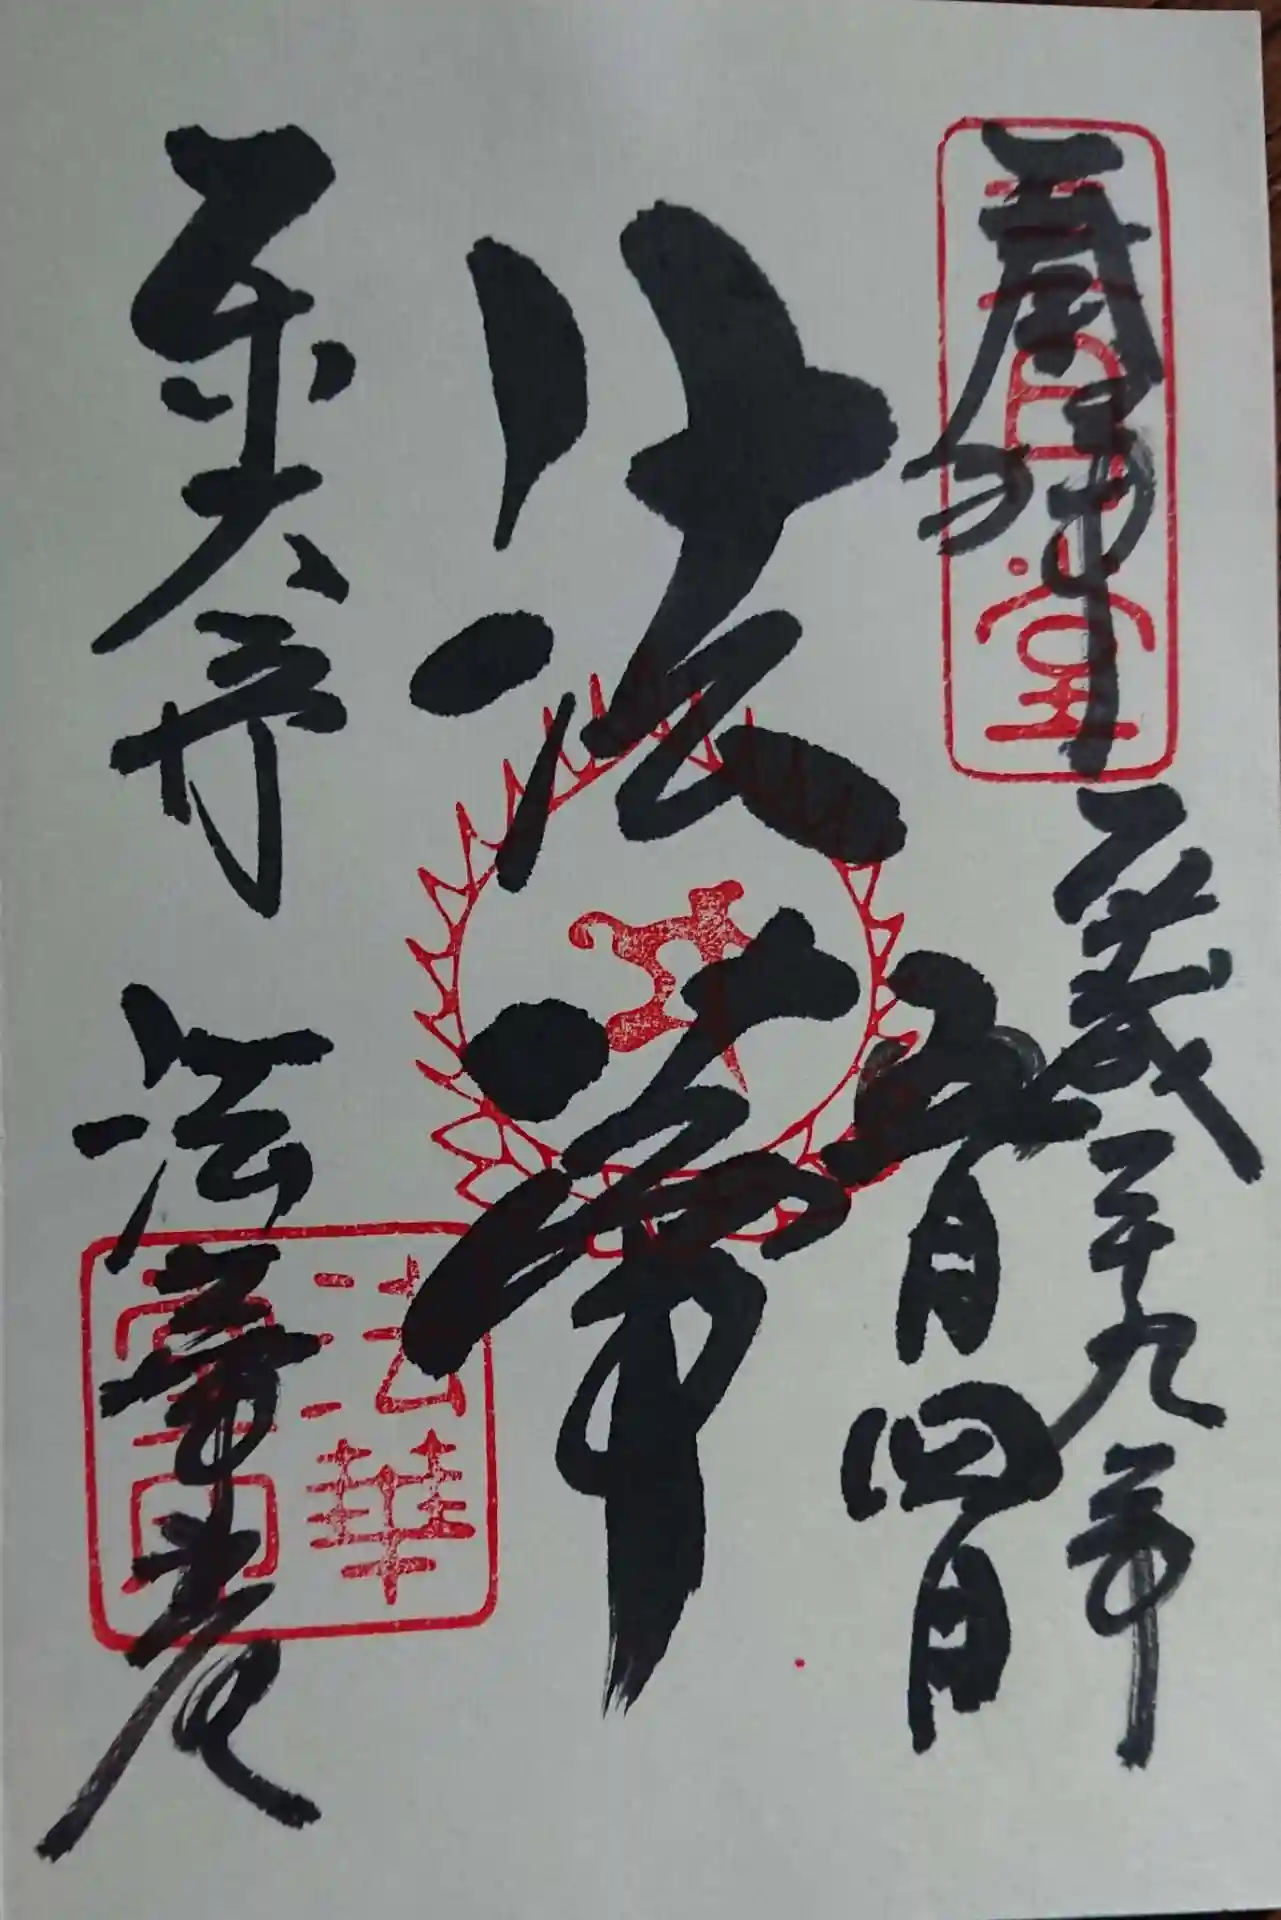 奉拝
三月堂
平成二十九年
五月四日
法華
東大寺 法華堂
法華堂印